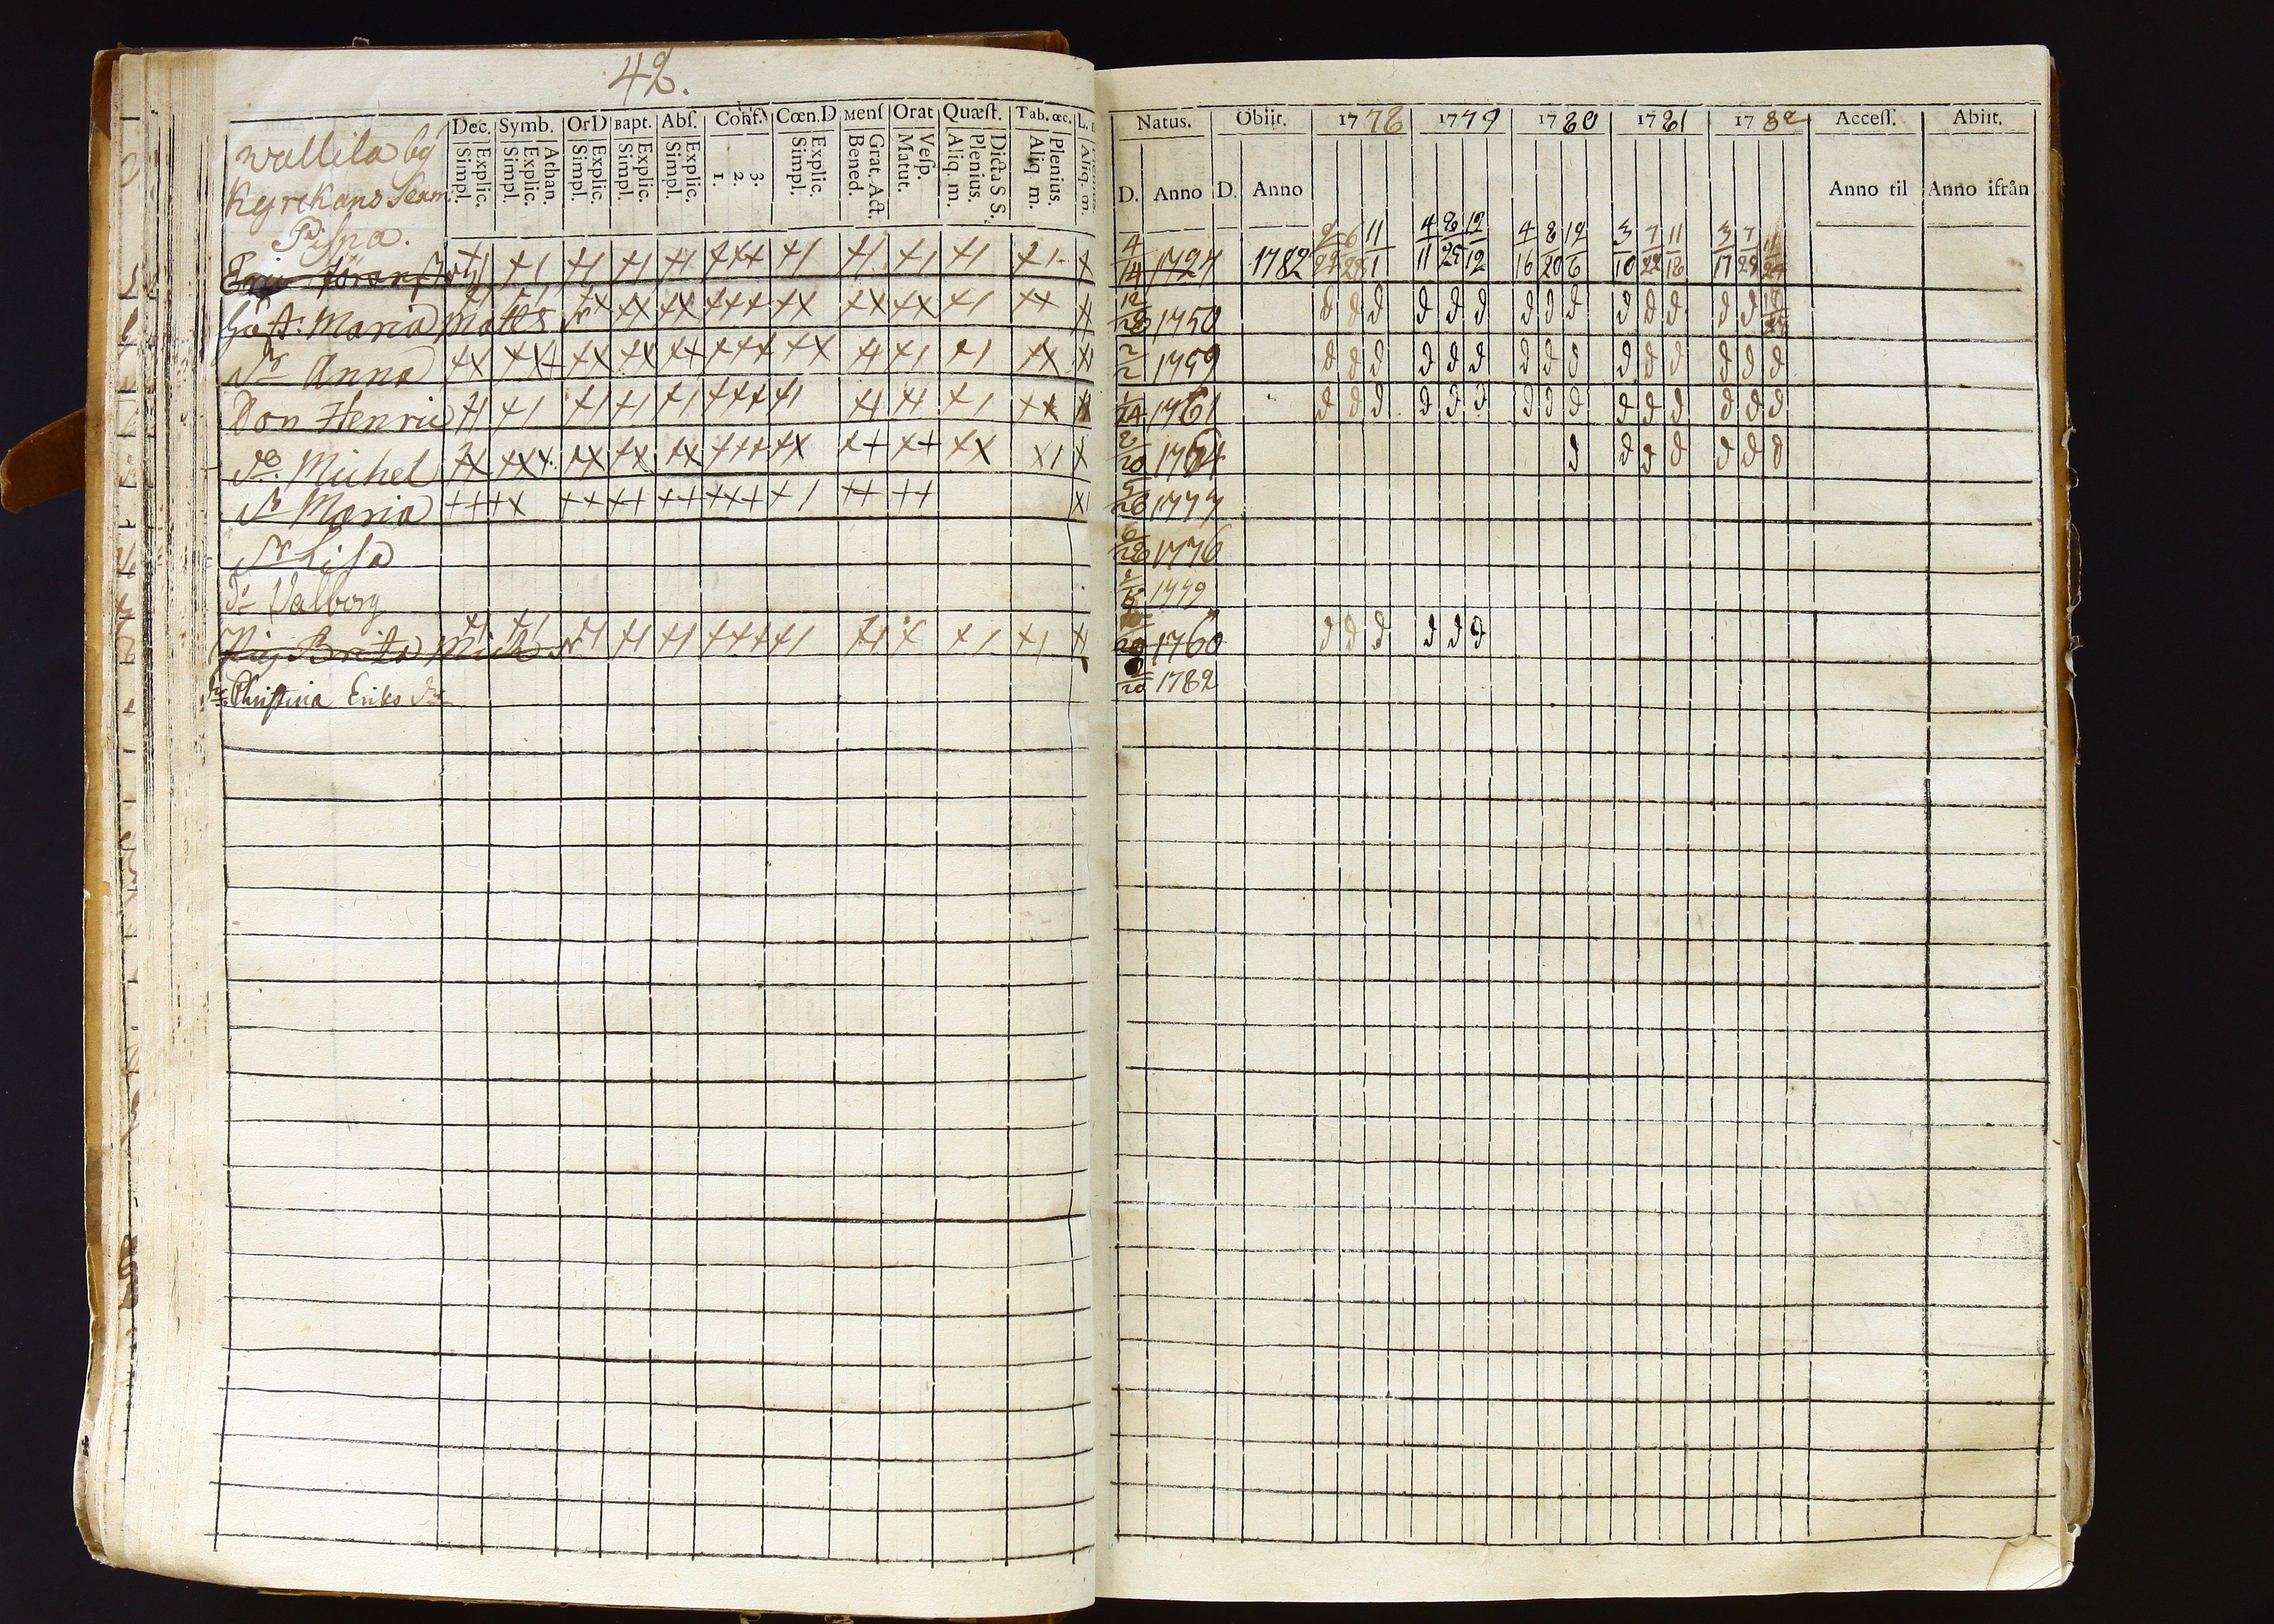 42.
Dec. Symb. OrD Bapt. Abſ. Conf. Cœn.D Menſ Orat Quæſt. Tab. œc. L.
Simpl. Explic. Simpl. Explic. Athan. Simpl. Explic. Simpl. Explic. Simpl. Explic. 1. 2. 3. Simpl. Explic. Bened. Grat. Act. Matut. Veſp. Aliq. m. Plenius. Dicta S S. Aliq. m. Plenius. Aliq. m.
wallila bÿ
Kyrckans
Eric
Maria Matts dr
Do Anna
Son Henric
Do Michel
Dr Maria
Dr Lisa
Dr Valborg
Pig Brita Mich dr
Christina Eriks dr
Natus. Obiit. 1778 1779 1780 1781 1782 Acceſſ. Abiit.
D. Anno D. Anno Anno til Anno ifrån
4/14 1724 1782 6/28 11/1 4/11 8/29 12/12 4/16 8/20 12/6 3/10 7/22 11/18 3/17 7/29 11/24
12/28 1750 d d d d d d d d d d d d d d
2/2 1759 d d d d d d d d d d d d d d d
1/24 1761 d d d d d d d d d d d d d d d
1764 d d d d d d d
1777
6/28 1776
1779
1760 d d d d d d
1782